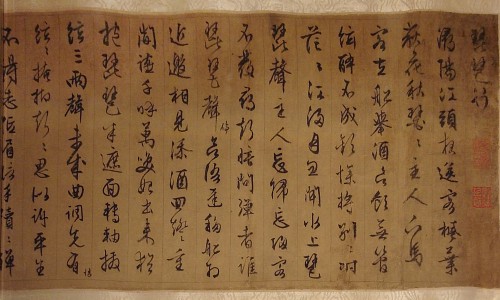 琵琶行
潯陽江頭夜送客楓葉
荻花秋瑟〻主人下馬
客在船舉酒欲飲無管
絃醉不成歡慘將別〻時
茫〻江浸月忽聞水上琵
琶聲主人忘歸客
不發尋聲暗問彈者誰
琵琶聲停欲語遲移船相
近邀相見添酒回燈重
開宴千呼萬喚始出來猶
抱琵琶半遮面轉軸撥
絃三兩聲未成曲調先有情
絃〻掩抑聲〻思似訴平生
不得志低眉信手續〻彈